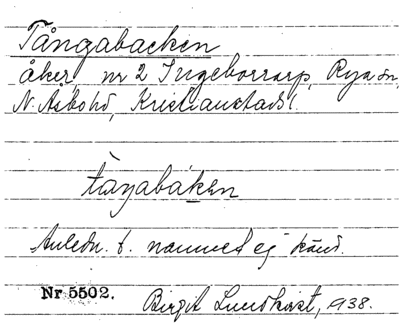 Tångabacken
åker, nr 2 Ingeborrarp, Rya sn,
N. Åsbo hd, Kristianstads l.
taŋabáken
Anledn. t. namnet ej känd.
Nr 5502. Birgit Lundkvist, 1938.